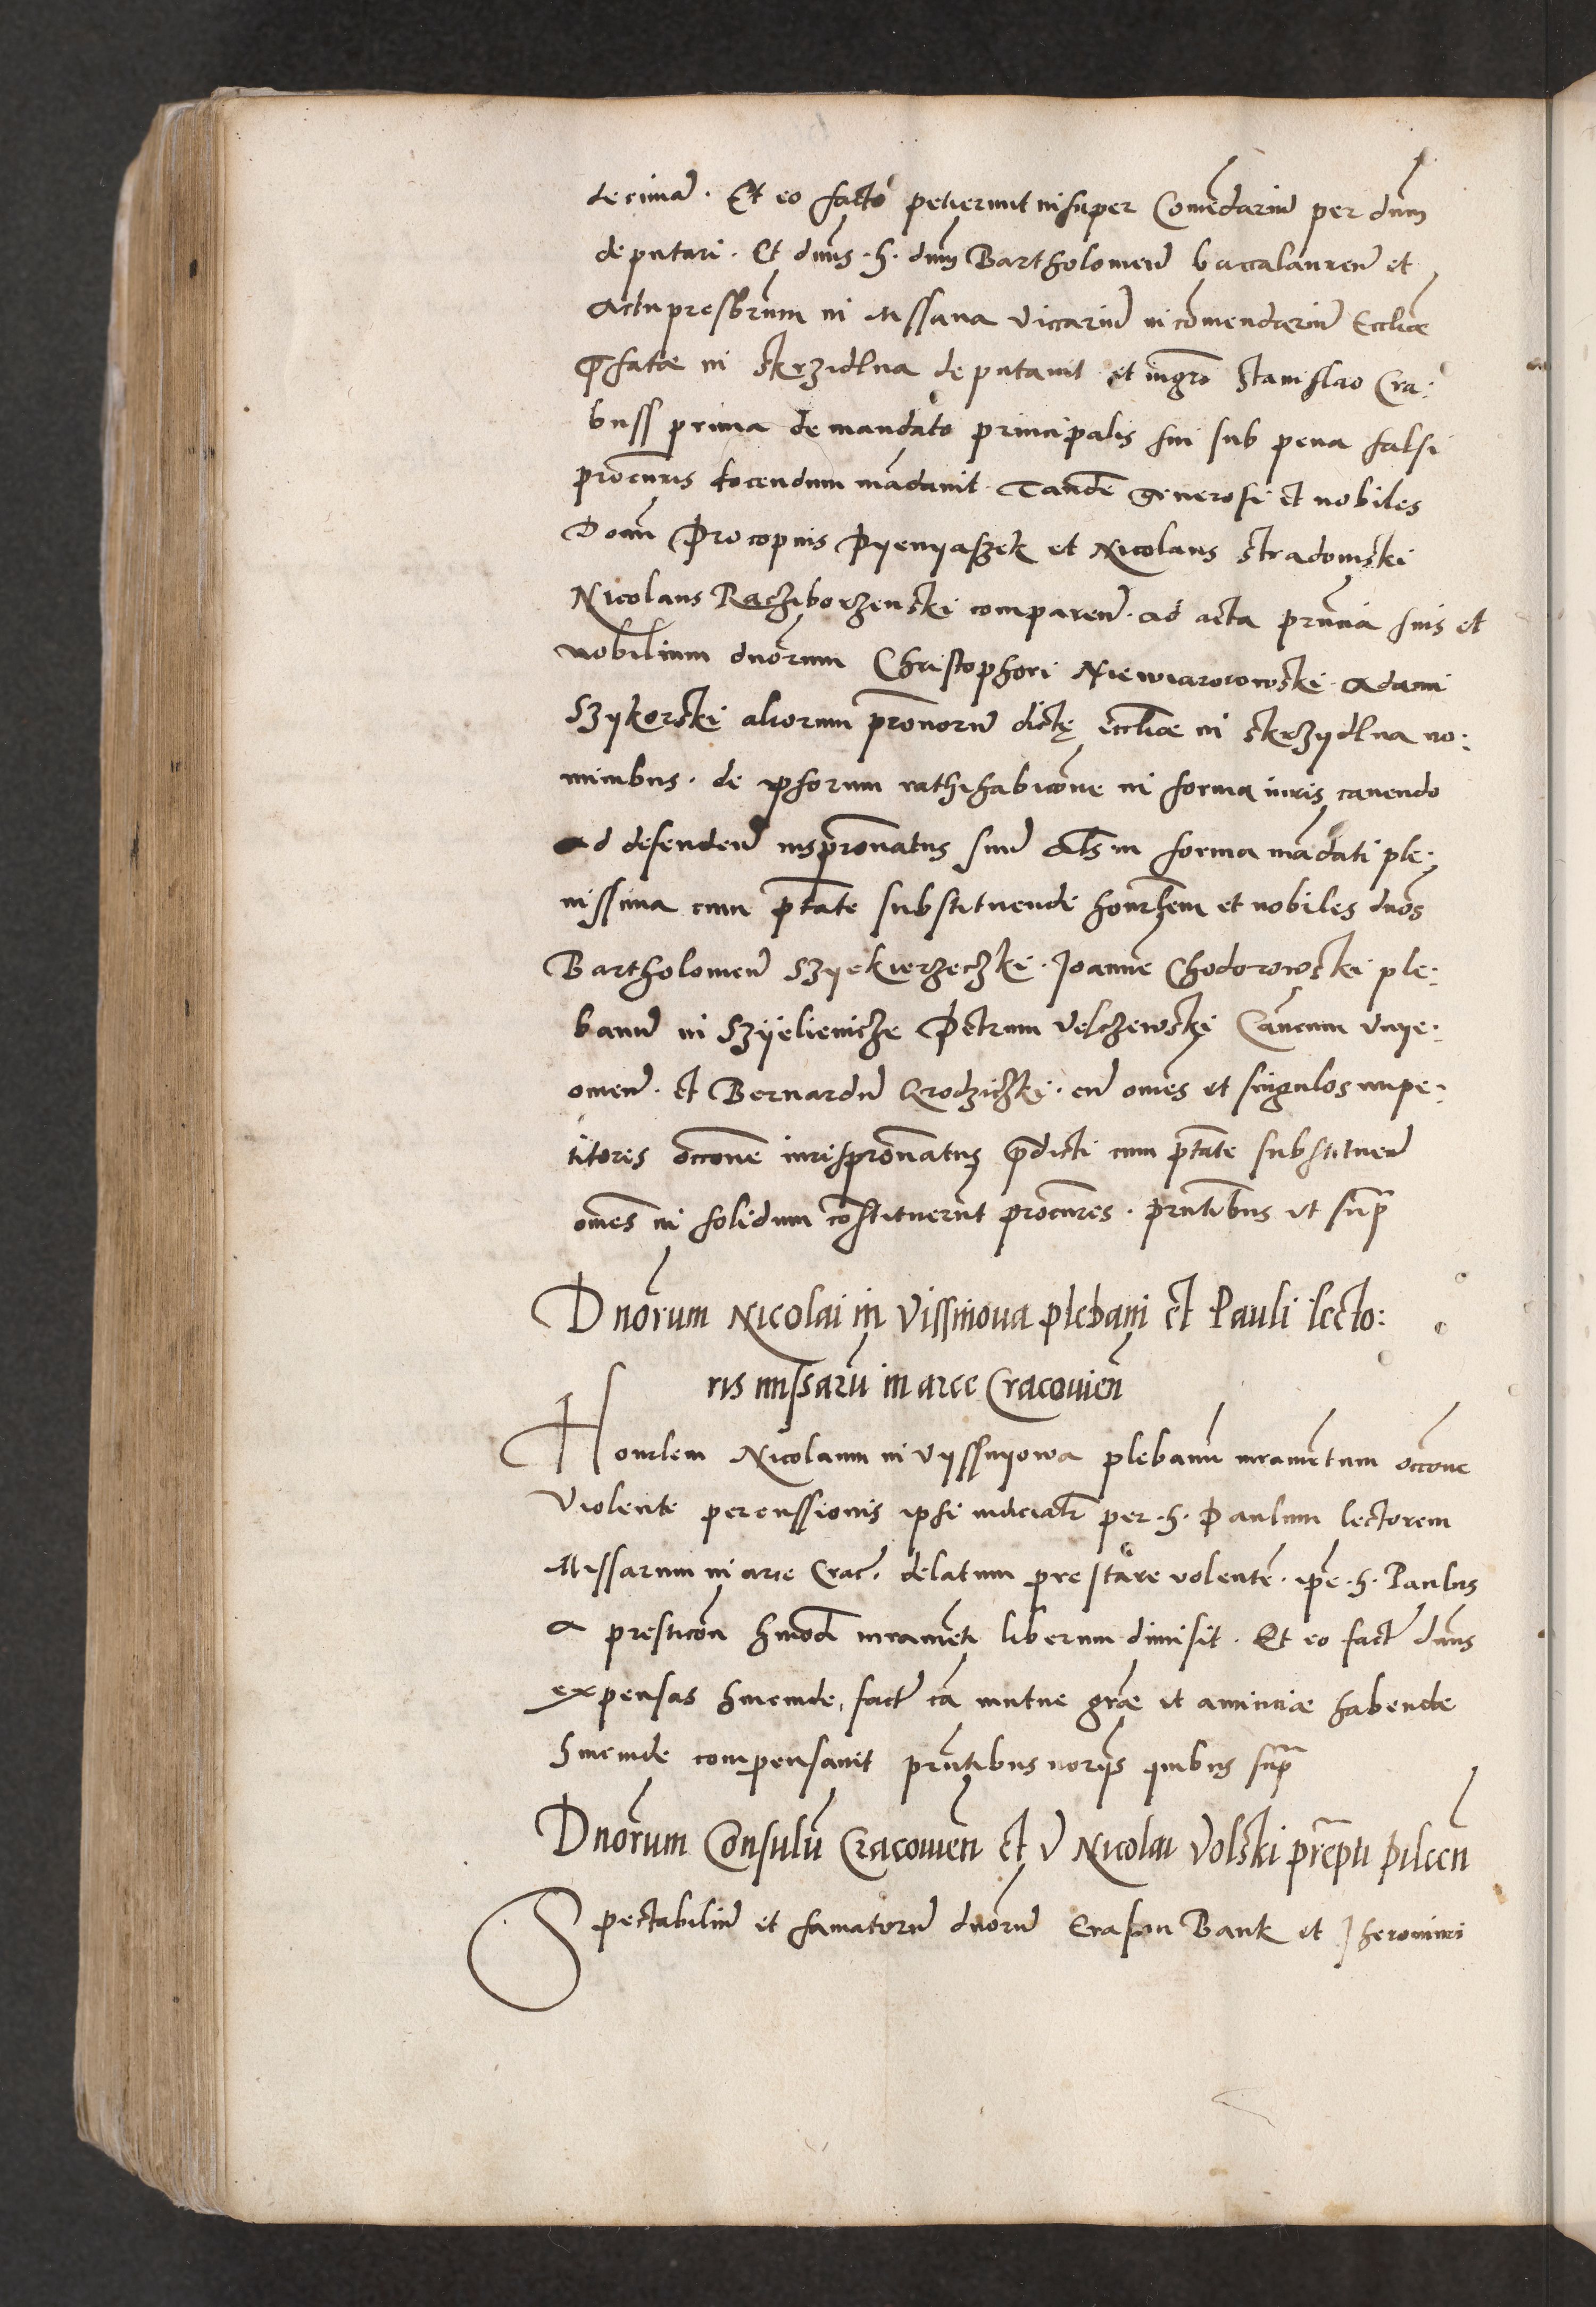 decimar̃. Et eo facto petierunt insuper Comẽdariũ per dnm̃
deputari. Et dnus̃ .h. dnm̃ Bartholomeũ baccalaureũ et
Actu presbr̃um in Mssana viccariũ in cõmendariũ Eccliæ
p̃fatæ in Skrzidlna deputauit et mgrõ Stanislao Cra:
buss prima de mandato principalis sui sub pena falsi
procur̃is docendum mãdauit. Tandẽ generosi et nobiles
Doñi Procopius Pyenyaszek et Nicolaus Stradomski
Nicolaus Racziborzenski comparen̄. ad acta prñtia suis et
nobilium dnõrum Christophori Niewiarorowski. Adami
Szykorski aliorum pr̃onorũ dictę eccliæ in Skrzydlna no:
minibus. de ipsorum rathihabicõne in forma iuris cauendo
ad defendeñ iuspr̃onatus suũ als̃ in forma mãdati ple:
nissima cum ptãte substituendi honorl̃em et nobiles dnõs
Bartholomeũ Szyekierzeczki. Joannẽ Chodorowski ple:
banũ in Szÿelieniche Petrum Velczewski Cãncum vnye:
ouieñ. et Bernardũ Grodziczki. eũ oñes et singulos impe:
titores occ̃one iurispr̃onatus p̃dicti cum ptãte substitueñ
oñes in solidum cõstituerũt procur̃es. prñtibus vt supr̃
Dnõrum Nicolai in Vissnioua plebani et Pauli lecto:
ris missarũ in arce Cracouieñ
Honrlem Nicolaum in vyssnyowa plebanũ iuramẽtum occ̃one
violente percussionis ipsi iudicialr̃ per .h. Paulum lectorem
Missarum in arce Crac̃. delatum prestare volentẽ. ip̃e .h. Paulus
a prestic̃oñ hmõdi iuramẽti liberum dimisit. Et eo facto dnũs
expensas hincinde factas cã mutue grãe et amiciciæ habendæ
hincinde compensauit prñtibus noriis̃ quibus supr̃
Dnõrum Consulũ Cracouieñ et V Nicolai Volski pr̃epti pilceñ
Spectabiliũ et famatorũ dnõrũ Erasmi Bank et Jheronimi